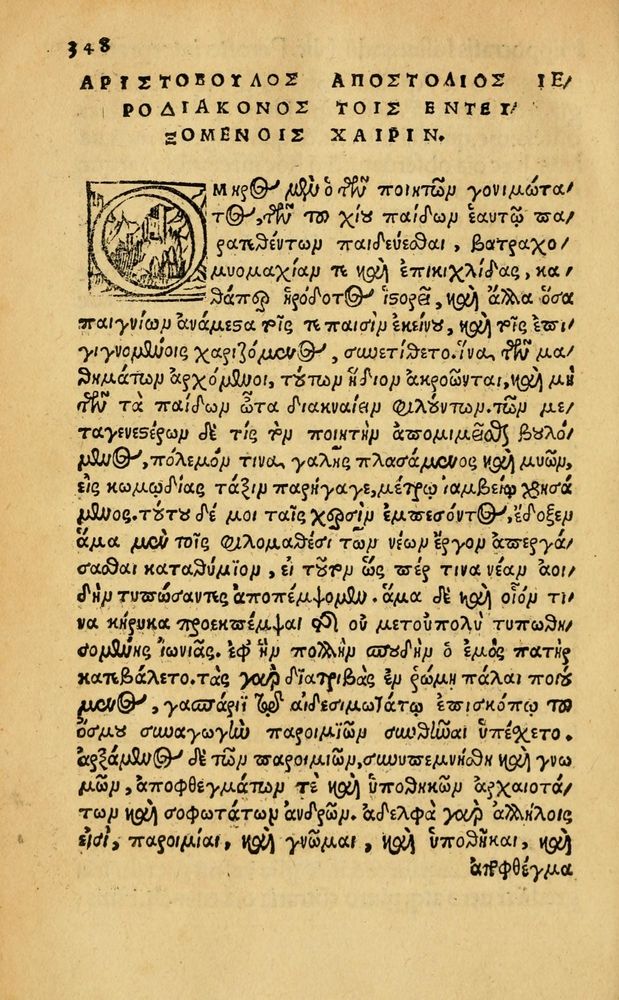 348
ΑΡΙΣΤΟΒΟΥΛΟΣ ΑΠΟΣΤΟΛΙΟΣ ΙΕ/
ΡΟΔΙΑΚΟΝΟΣ ΤΟΙΣ ΕΝΤΕΥ/
ΞΟΜΕΝΟΙΣ ΧΑΙΡΙΝ.
ΟΜΗΡος μὲν ὁ τῶν ποιητῶν γονιμώτα/
τος, τῶν τοῦ χίου παίδων ἑαυτῷ πα/
ρατεθέντων παιδεύεσθαι, βατραχο/
μυομαχίαν τε καὶ ἐπικιχλίδας, κα/
θάπερ ἡρόδοτος ἱστορεῖ, καὶ ἄλλα ὅσα
παιγνίων ἀνάμεστα τοῖς τε παισὶν ἐκείνου, καὶ τοῖς ἐπι/
γιγνομένοις χαριζόμενος, συνετίθετο. ἵνα τῶν μα/
θημάτων ἀρχόμενοι, τούτων ἥδιον ἀκροῶνται, καὶ μὴ
τῶν τὰ παίδων ὦτα διακναίειν φιλούντων. τῶν με/
ταγενεστέρων δέ τις τὸν ποιητὴν ἀπομιμεῖσθαι βουλό/
μενος, πόλεμόν τινα γαλῆς πλασάμενος καὶ μυῶν,
εἰς κωμῳδίας τάξιν παρήγαγε, μέτρῳ ἰαμβείῳ χρησά
μενος. τούτου δέ μοι ταῖς χερσὶν ἐμπεσόντος, ἔδοξεν
ἅμα μὲν τοῖς φιλομαθέσι τῶν νέων ἔργον ἀπεργά/
σασθαι καταθύμιον, εἰ τοῦτον ὥς πέρ τινα νέαν ἀοι/
δὴν τυπώσαντες ἀποπέμψομεν. ἅμα δὲ καὶ οἷόν τι/
να κήρυκα προεκπέμψαι τῆς οὐ μετοὐπολὺ τυπωθη/
σομένης ἰωνιᾶς. ἐφ ἣν πολλὴν σπουδὴν ὁ ἐμὸς πατὴρ
κατεβάλετο. τὰς γὰρ διατριβὰς ἐν ῥώμῃ πάλαι ποιού
μενος, γασπάρῳ τῷ αἰδεσιμωτάτῳ ἐπισκόπῳ τοῦ
ὄσμου συναγωγὴν παροιμιῶν συνθεῖναι ὑπέχετο.
ἀρξάμενος δὲ τῶν παροιμιῶν, συνυπεμνήσθη καὶ γνω
μῶν, ἀποφθεγμάτων τὲ καὶ ὑποθηκῶν ἀρχαιοτά/
των καὶ σοφωτάτων ἀνδρῶν. ἀδελφὰ γὰρ ἀλλήλοις
εἰσὶ, παροιμίαι, καὶ γνῶμαι, καὶ ὑποθῆκαι, καὶ
ἀποφθέγμα